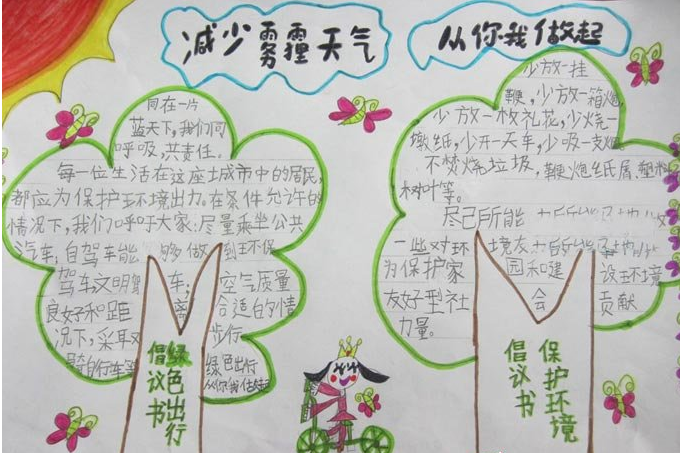 减少雾霾天气
从你我做起
同在一片
蓝天下,我们同
呼吸,共责任。
每一位生活在这座城市中的居民,
都应为保护环境出力。在条件允许的
情况下,我们呼吁大家:尽量乘坐公共
汽车;自驾车能够做到环保
驾车文明车;空气质量
良好和距离合适的情
况下,采取步行
骑自行车等绿色出行
从你我做起
绿色出行
倡议书
少放一挂
鞭,少放一箱炮,
少放一枚礼花,少烧一
墩纸,少开一天车,少吸一支烟
不焚烧垃圾,鞭炮纸屑,塑料
树叶等。
尽己所能
一些对环境友
为保护家园和建设环境
友好型社会贡献
力量。
保护环境
倡议书